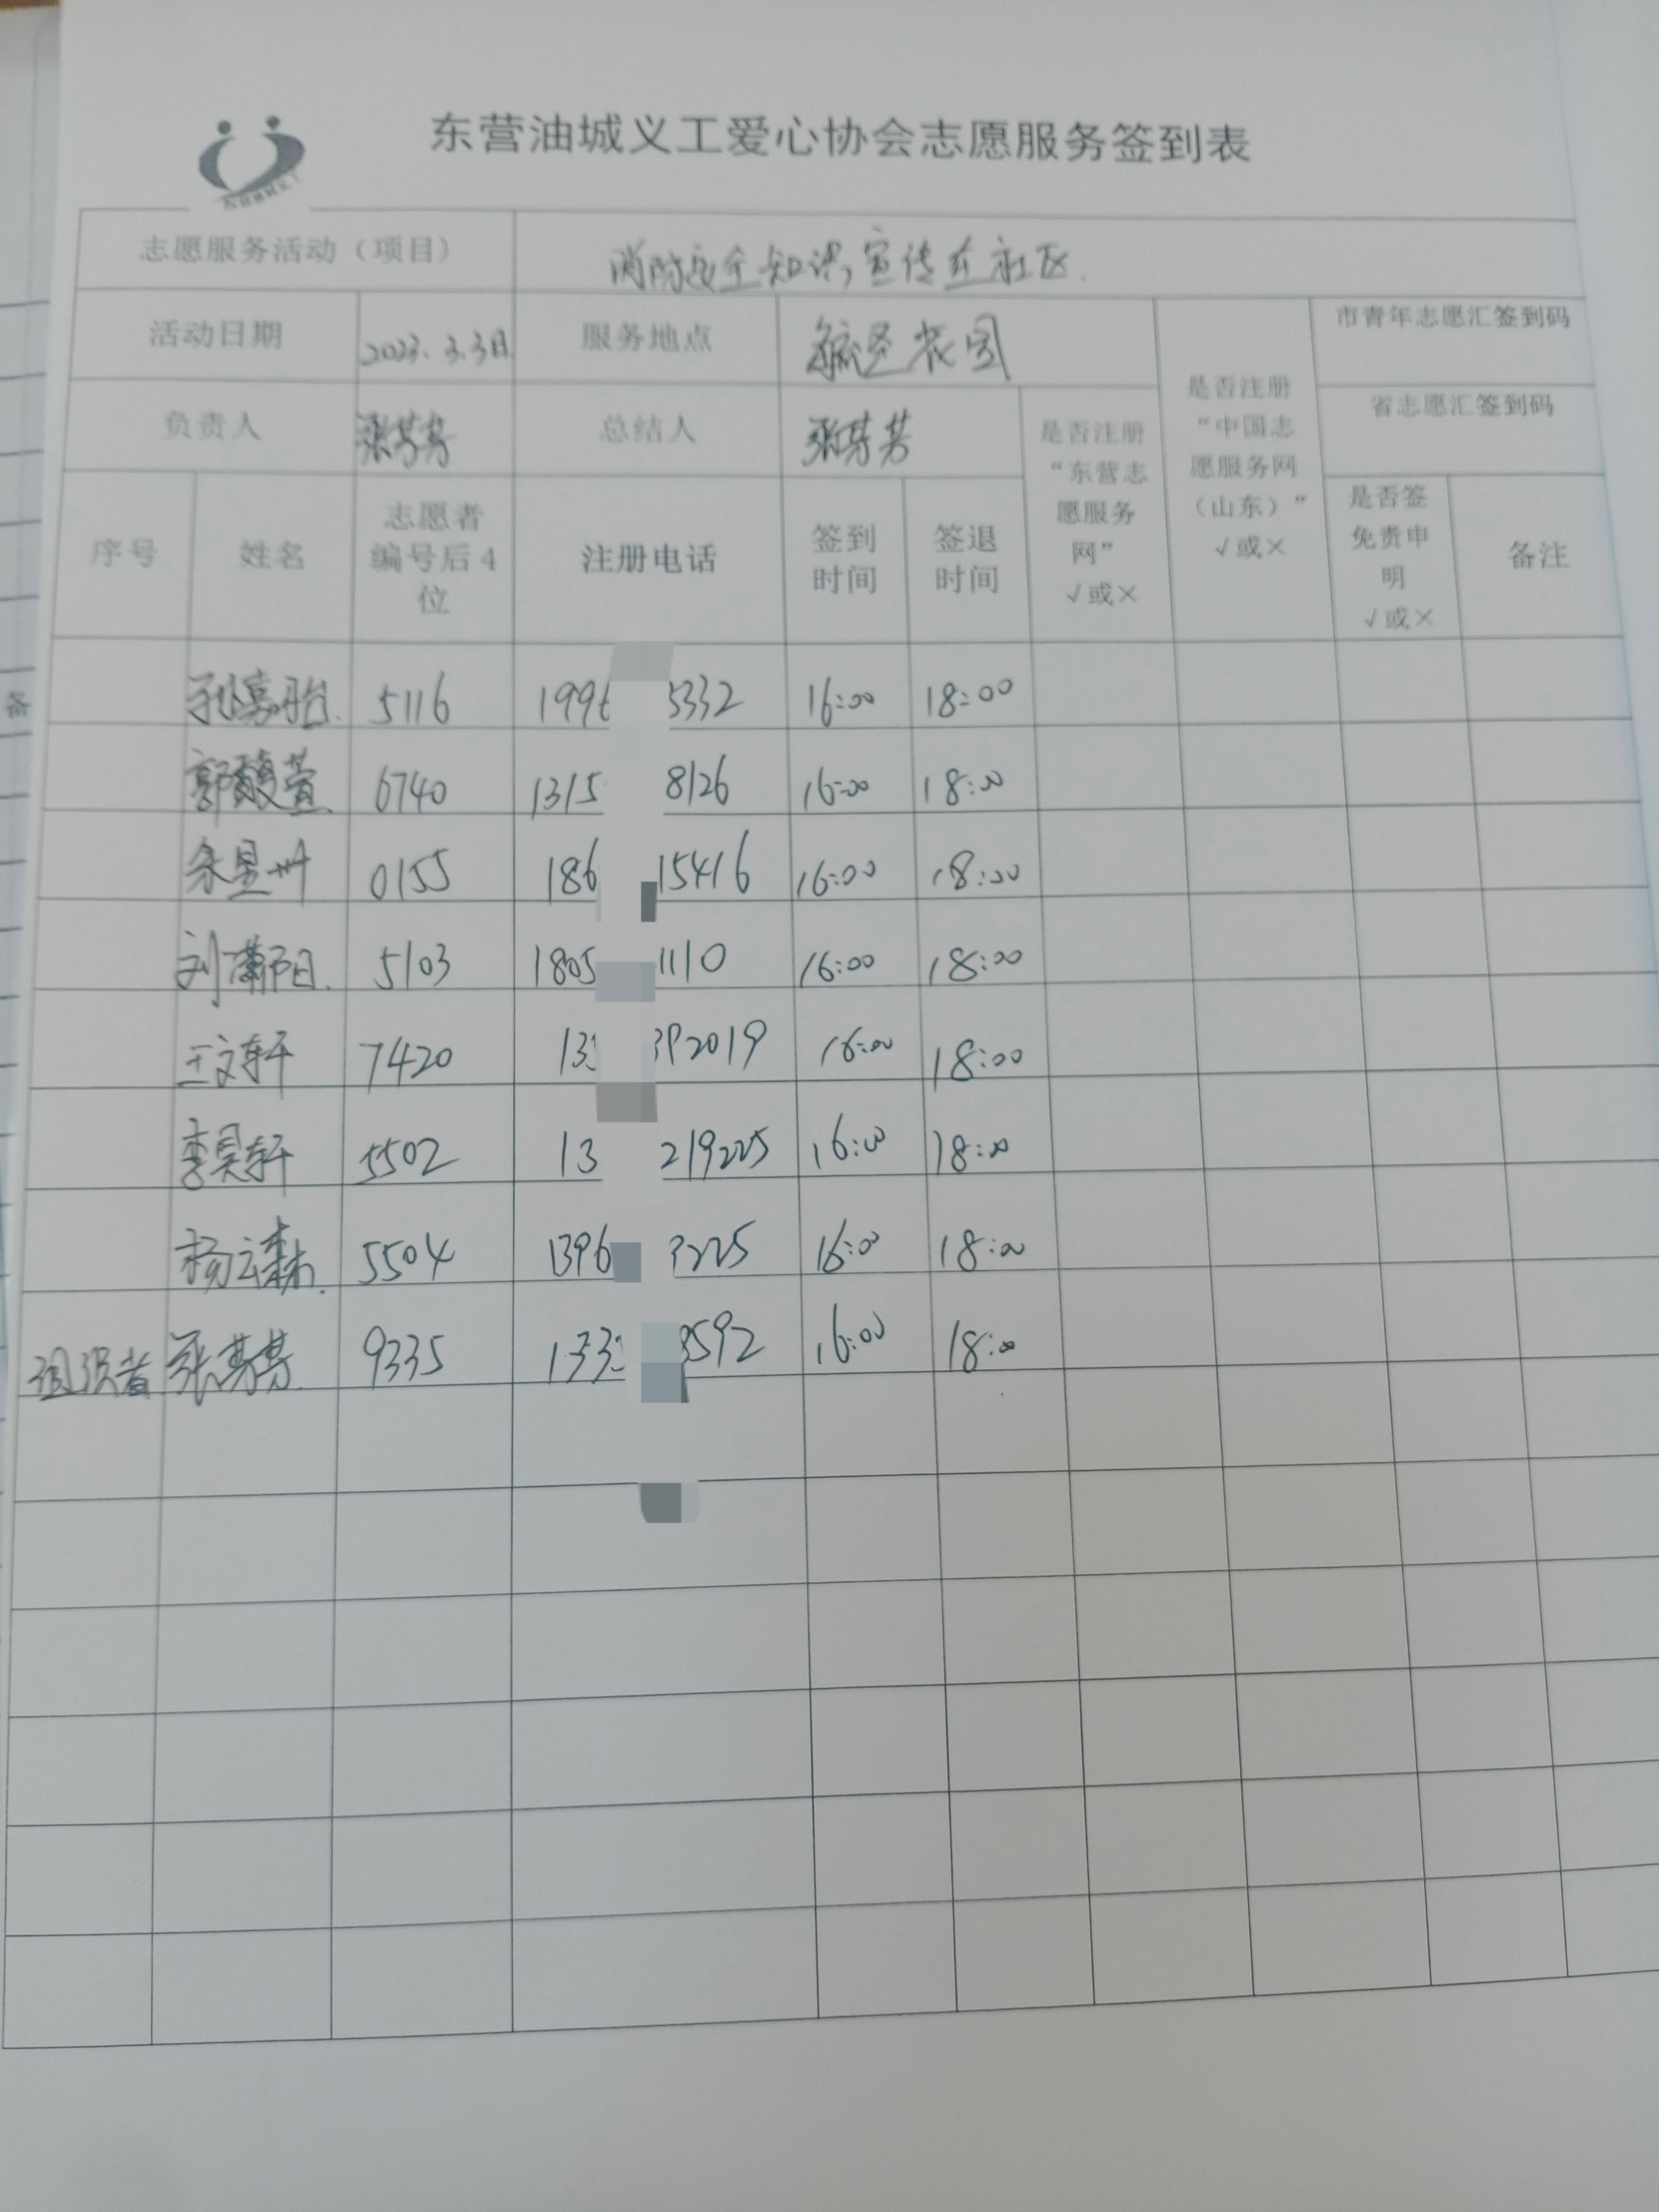 东营油城义工爱心协会志愿服务签到表
志愿服务活动（项目） 消防安全知识宣传在社区.
活动日期 2023.3.3日 服务地点 花园
市青年志愿汇签到码
负责人 张芳芳 总结人 张芳芳
省志愿汇签到码
是否注册
“东营志
愿服务
网”
√或×
是否注册
“中国志
愿服务网
（山东）”
√或×
序号 姓名
志愿者
编号后4
位
注册电话
签到
时间
签退
时间
是否签
免责申
明
√或×
备注
备
孙嘉怡 5116 1996 5332 16:00 18:00
郭馥萱 6740 1315 8126 16:00 18:00
0155 186 15416 16:00 18:00
刘潇阳. 5103 1805 1110 16:00 18:00
王文轩 7420 13 392019 16:00 18:00
李昊轩 5502 13 219225 16:00 18:00
杨云森. 5504 1396 9225 16:00 18:00
组织者 张芳芳 9335 133 8592 16:00 18:00